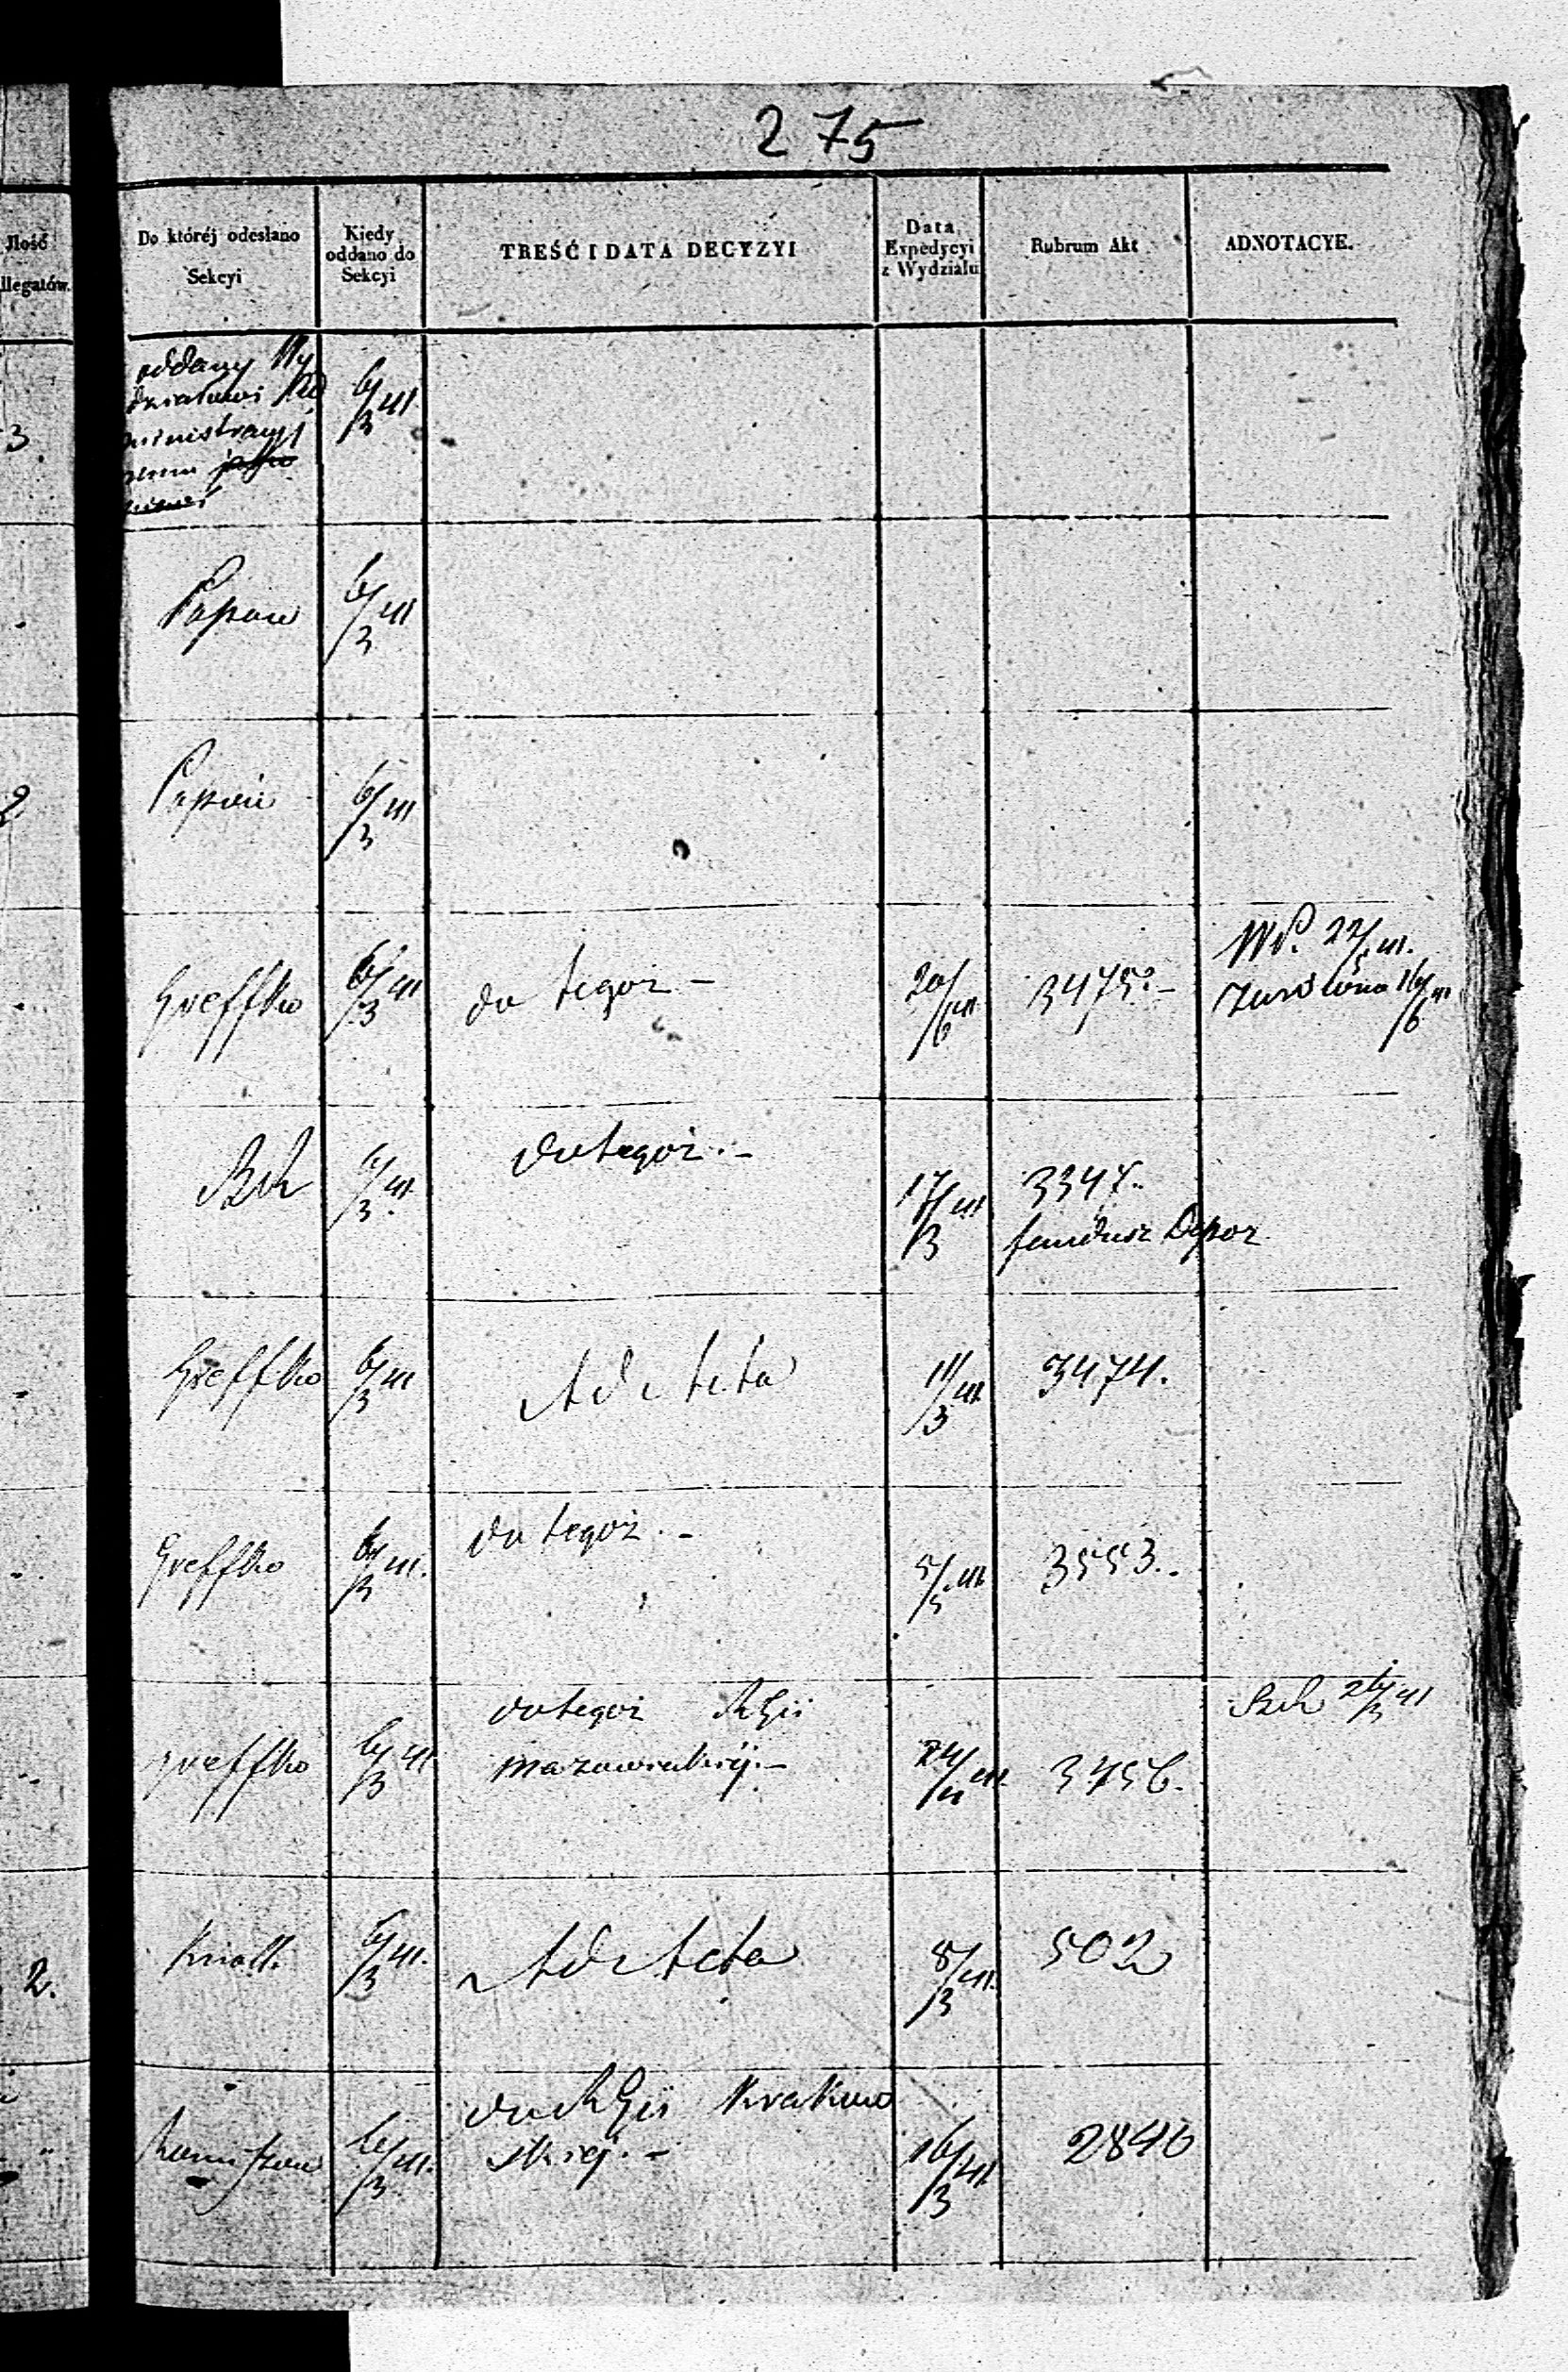 275
Jlość
llegatów.
Do któréj odesłano
Sekcyi
Kiedy
oddano do
Sekcyi
TREŚĆ I DATA DECYZYI
Data
Expedycyi
z Wydziału
Rubrum Akt
ADNOTACYE.
3.
oddany Wy
działowi Ad
ministracyj
nemu
6/3 41
6/3 41
2
6/3 41
Greffko 6/3 41 do tegoż - 20/6 41 3475. -
WP. 22/ 41.
16/6 41
6/3 41. do tegoż. - 17/3 41
fundusz Depoz
Greffko 6/3 41 Ad Acta 11/3 41. 3474.
Greffko 6/3 41. do tegoż. - 5/5 41. 3553.
Greffko 6/3 41 do tegoż RGii
mazowieckiej. - 24/ 41. 3456.
26/3 41
2. Knoll. 6/3 41. Ad Acta 8/3 41. 502
6/3 41. do RGii Krakow
skiej. - 16/3 41 2840